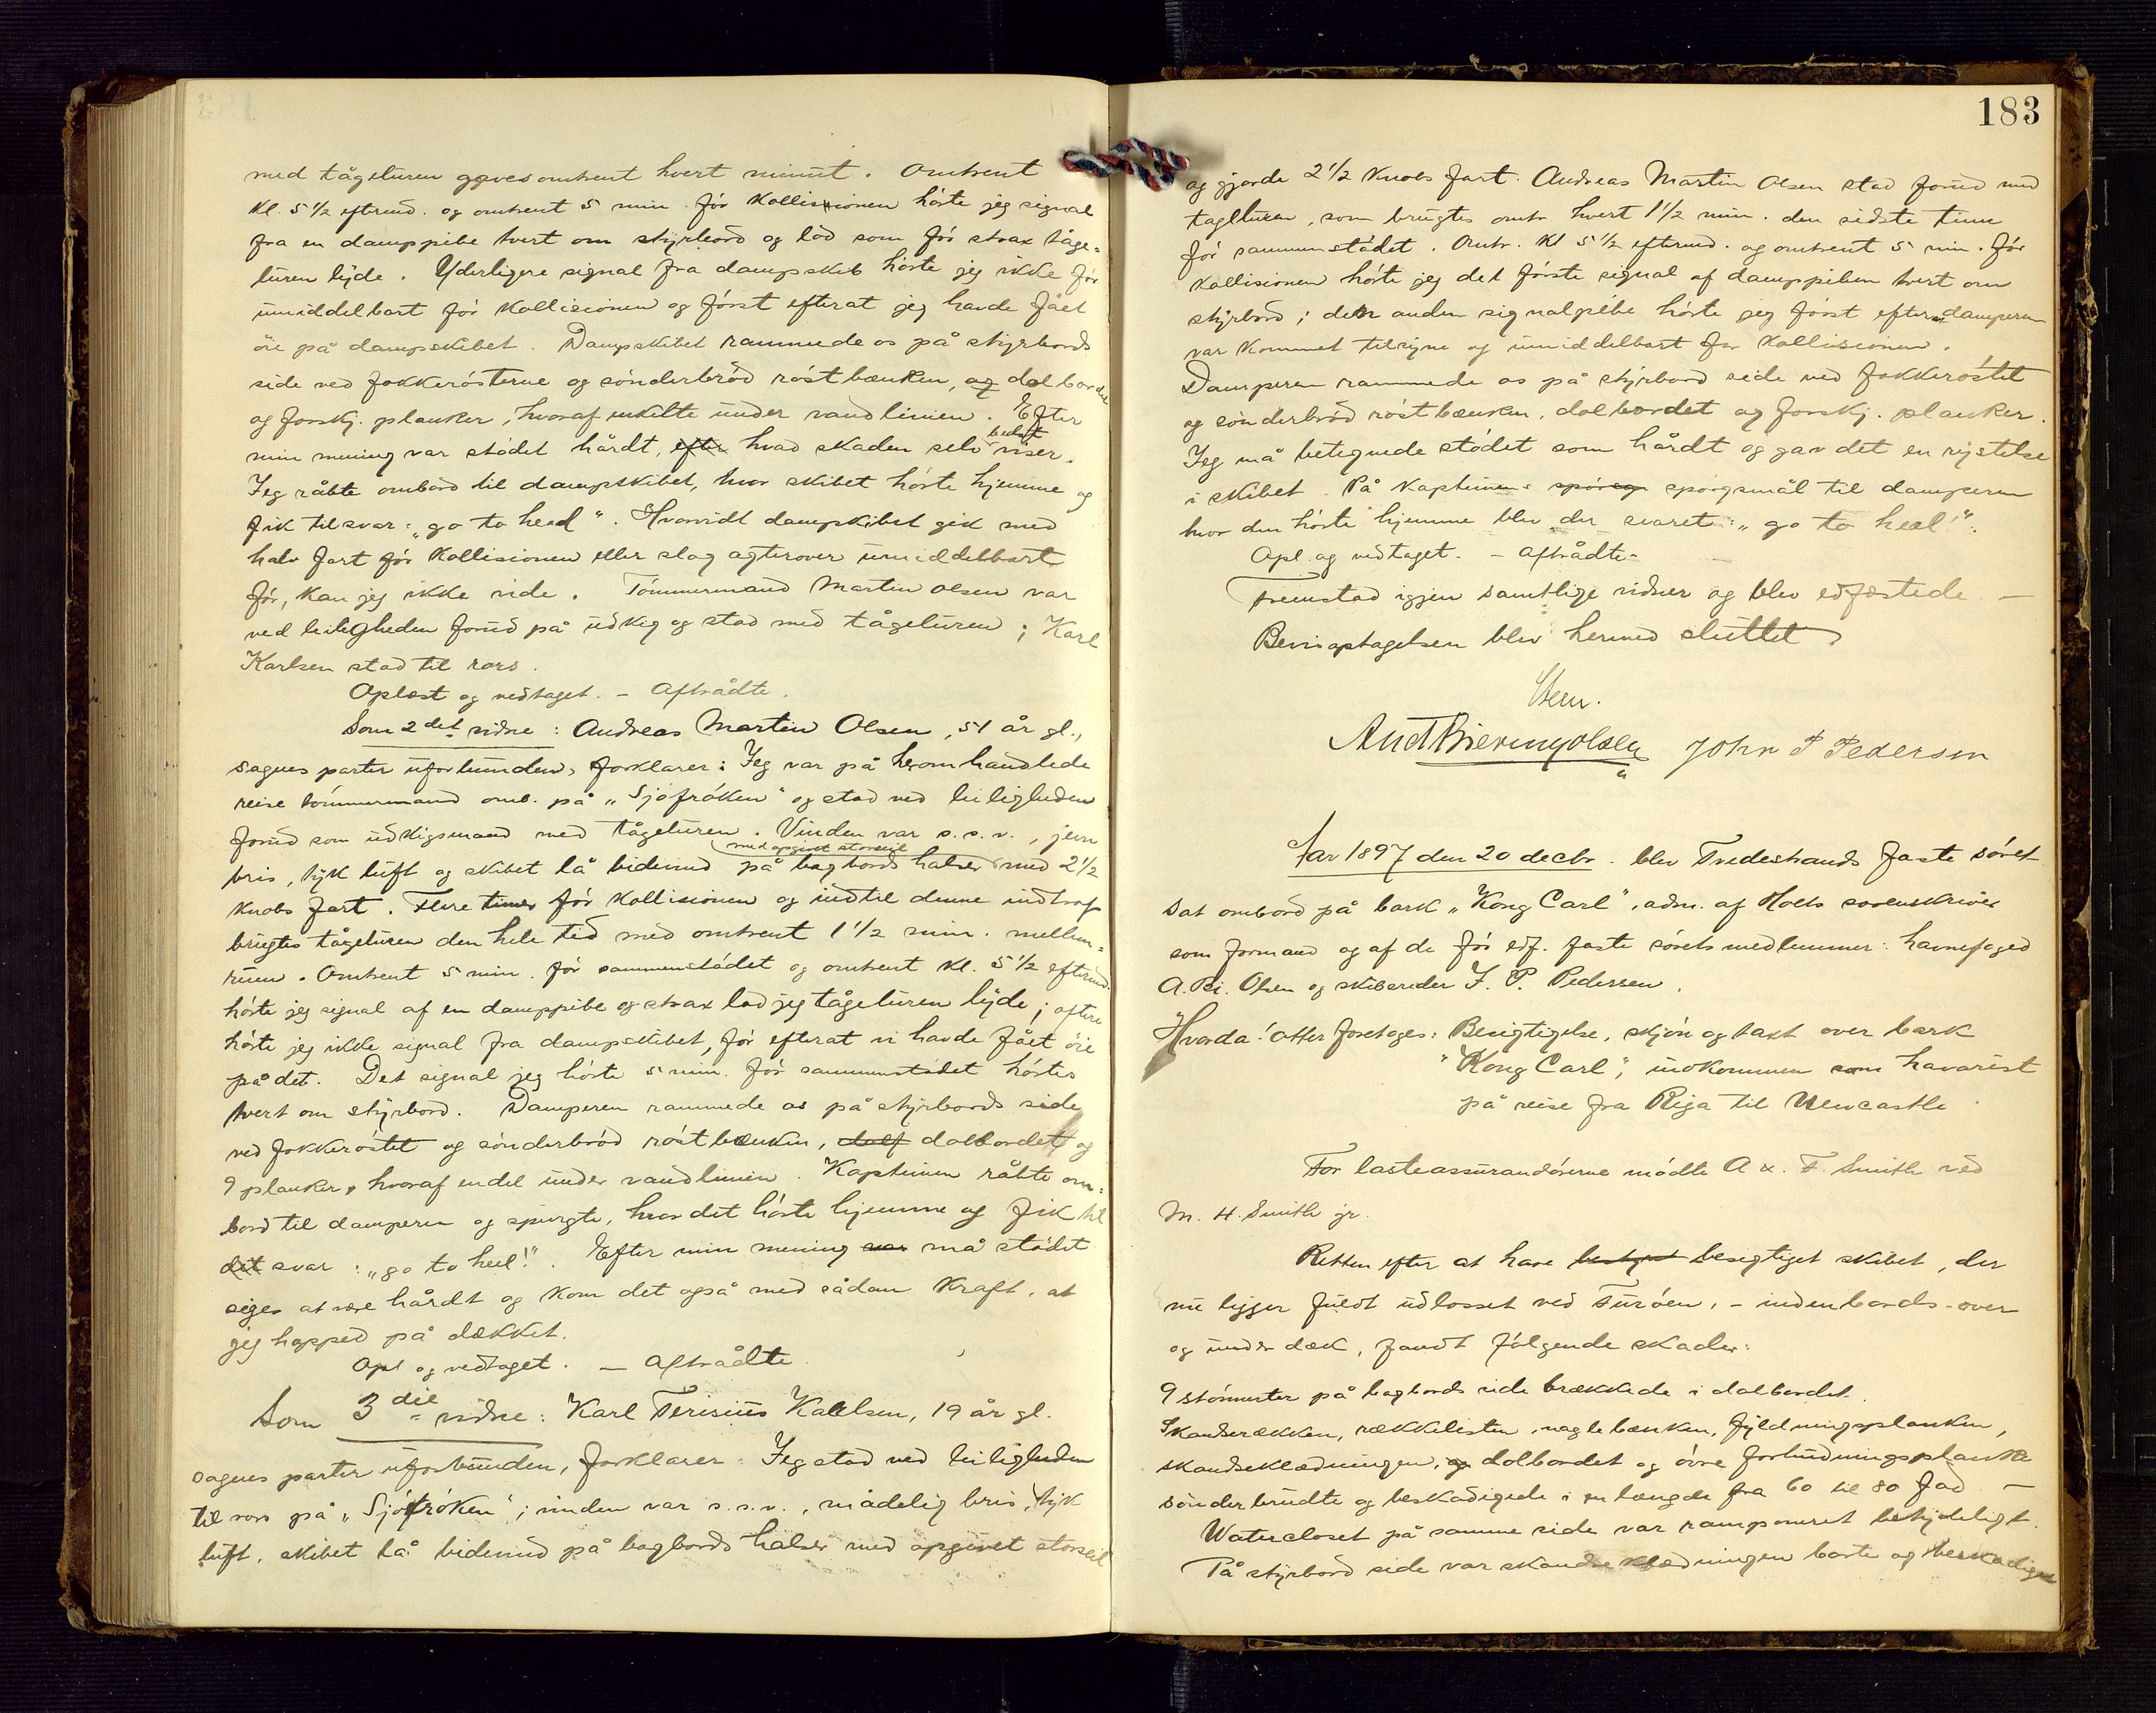 med tågeluren gaves omtrent hvert minut. Omtrent
Kl. 5 ½ eftmd. og omtrent 5 min. før Kollisionen hørte jeg signal
fra en damppibe tvert om styrbord og lod som før strax tåge=
luren lyde. Yderligere signal fra dampskib hørte jeg ikke før
umiddelbart før Kollisionen og først efterat jeg havde fået
øie på dampskibet. Dampskibet rammede os på styrbords
side ved fokkerøsterne og sønderbrød røstbænken, og dolbordet
og forskj. planker, hvoraf enkelte under vandlinien. Efter
min mening var stødet hårdt, efter hvad skaden selv bedst viser.
Jeg råbte ombord til dampskibet, hvor skibet hørte hjemme og
fik til svar: "go to heed". Hvorvidt dampskibet gik med
halv fart før Kollisionen eller slog agterover umiddelbart
før, kan jeg ikke vide. Tømmermand Martin Olsen var
ved leiligheden forud på udkig og stod med tågeluren; Karl
Karlsen stod til rors.
Oplæst og vedtaget. - Aftrådte.
Som 2det vidne: Andreas Martin Olsen, 51 år gl.,
sagnes parter uforbunden, forklarer: Jeg var på heromhandlede
reise tømmermand omb. på "Sjøfrøken" og stod ved leiligheden
forud som udkigsmand med tågeluren. Vinden var s.s.v., jevn
bris, tyk luft og skibet lå bidevind på bagbords halser med opgivet storseil med 2½
Knobs fart. Flere timer før Kollisionen og indtil denne indtraf
brugtes tågeluren den hele tid med omtrent 1½ min. mellem=
rum. Omtrent 5 min. før sammenstødet og omtrent Kl. 5½ eftermd.
hørte jeg signal af en damppibe og strax lod jeg tågeluren lyde; oftere
hørte jeg ikke signal fra dampskibet, før efterat vi havde fået øie
på det. Det signal jeg hørte 5 min. før sammenstødet hørtes
tvert om styrbord. Damperen rammede os på styrbords side
ved fokkerøstet og sønderbrød røstbænken, dolbordet og
9 planker, hvoraf endel under vandlinien. Kapteinen råbte om=
bord til damperen og spurgte, hvor det hørte hjemme og fik til
det svar: "go to heel!". Efter min mening var må stødet
siges at være hårdt og kom det også med sådan kraft, at
jeg hopped på dækket.
Opl og vedtaget. - Aftrådte
Som 3die vidne: Karl Terisius Kallsen, 19 år gl.
sagnes parter uforbunden, forklarer: Jeg stod ved leiligheden
til rors på "Sjøfrøken"; vinden var s.s.v., mådelig bris, tyk
luft, skibet lå bidevind på bagbords halser med opgivet storseil
183
og gjorde 2½ Knobs fart. Andreas Martin Olsen stod forud med
tågeluren, som brugtes omtr. hvert 1½ min. den sidste time
før sammenstødet. Omtr. Kl 5½ eftermd. og omtrent 5 min. før
Kollisionen hørte jeg det første signal af damppiben tvert om
styrbord; den anden signalpibe hørte jeg først efterat damperen
var kommet tilsyne og umiddelbart før Kollisionen.
Damperen rammede os på styrbord side ved fokkerøstet
og sønderbrød røstbænken, dolbordet og forskj. planker.
Jeg må betegnede stødet som hårdt og gav det en rystelse
i skibet. På Kapteinens spørgsmål til damperen
hvor den hørte hjemme blev der svaret: "go to heel!".
Opl. og vedtaget. - Aftrådte -
Fremstod igjen samtlige vidner og blev edfæstede. -
Bevisoptagelsen blev hermed sluttet
Stem.
And Bieringolsen John P Pedersen
Aar 1897 den 20 decbr. blev Tvedestrands faste søret
sat ombord på bark "Kong Carl", adm. af Holts sorenskriver
som formand og af de før edf. faste sørets medlemmer: havnefoged
A. Bi. Olsen og skibsreder J. P. Pedersen.
Hvorda! Otter foretoges: Besigtigelse, skjøn og taxt over bark
"Kong Carl", indkommen som havarist
på reise fra Riga til Newcastle
For lasteassurandørerne mødte A & F. Smith ved
M. H. Smith jr.
Retten efter at have besigtiget skibet, der
nu ligger fuldt udlosset ved Furøen, - indenbords - over
og under dæk, fandt følgende skader:
9 støtter på bagbords side brækkede i dolbordet.
Skandserækken, rækkelisten, naglebænken, fyldningsplanken,
skandseklædningen, og dolbordet og øvre forhudningsplanke
sønderbrudte og beskadigede i en længde fra 60 til 80 fod -
Watercloset på samme side var ramponeret betydeligt.
På styrbord side var skandseklædningen borte og beskadiget